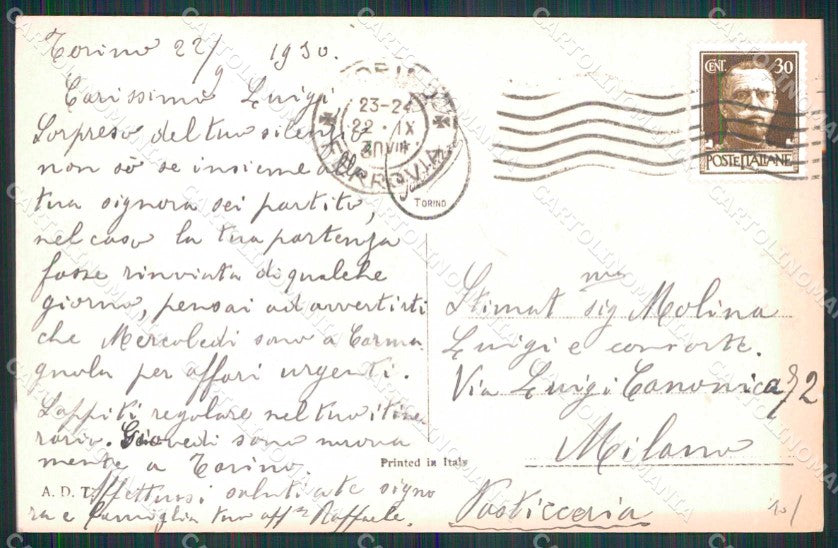 Torino 22/9 1930.
Carissimo Luigi
Sorpreso del tuo silenzio
non sò se insieme alla
tua signora sei partito,
nel caso la tua partenza
fosse rinviata di qualche
giorno, pensai ad avvertirti
che Mercoledi sono a Carma
gnola per affari urgenti.
Sappiti regolare nel tuo itine
rario. Giovedi sono nuova
mente a Torino.
Affettuosi saluti a te signo
ra e famiglia tuo aff Raffaele.
A. D. T.
Printed in Italy
FERROVIA
23-24
22 · IX
30 VIII
TORINO
CENT. 30
POSTE ITALIANE
Stimat sig Molina
Luigi e consorte.
Via Luigi Canonica 72
Milano
Pasticceria
CARTOLINOMANIA